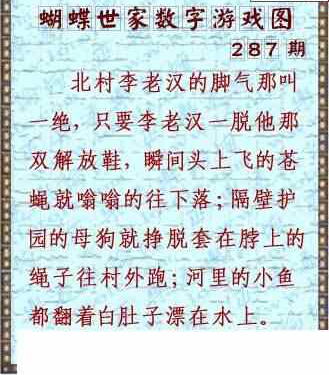 蝴蝶世家数字游戏图
287期
北村李老汉的脚气那叫
一绝，只要李老汉一脱他那
双解放鞋，瞬间头上飞的苍
蝇就嗡嗡的往下落；隔壁护
园的母狗就挣脱套在脖上的
绳子往村外跑；河里的小鱼
都翻着白肚子漂在水上。